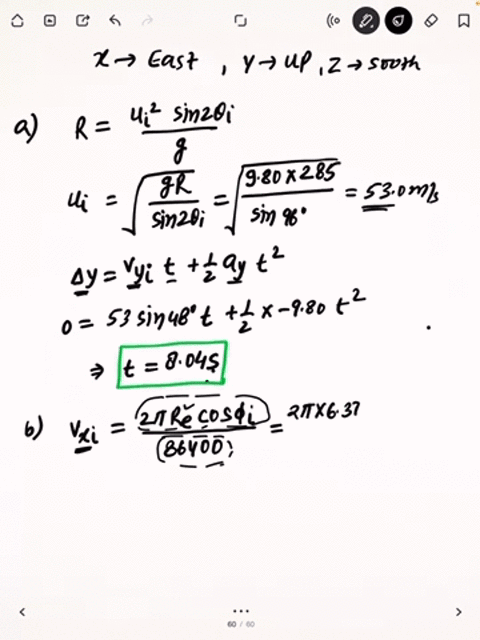 x → East , Y → UP , Z → South
a) R = ui² sin2θi / g
ui = √(gR / sin2θi) = √(9.80 × 285 / sin 96°) = 53.0 m/s
Δy = vyi t + 1/2 ay t²
0 = 53 sin48° t + 1/2 × -9.80 t²
⇒ t = 8.04s
b) vxi = 2π Re cosϕi / 86400 = 2π×6.37
60 / 60